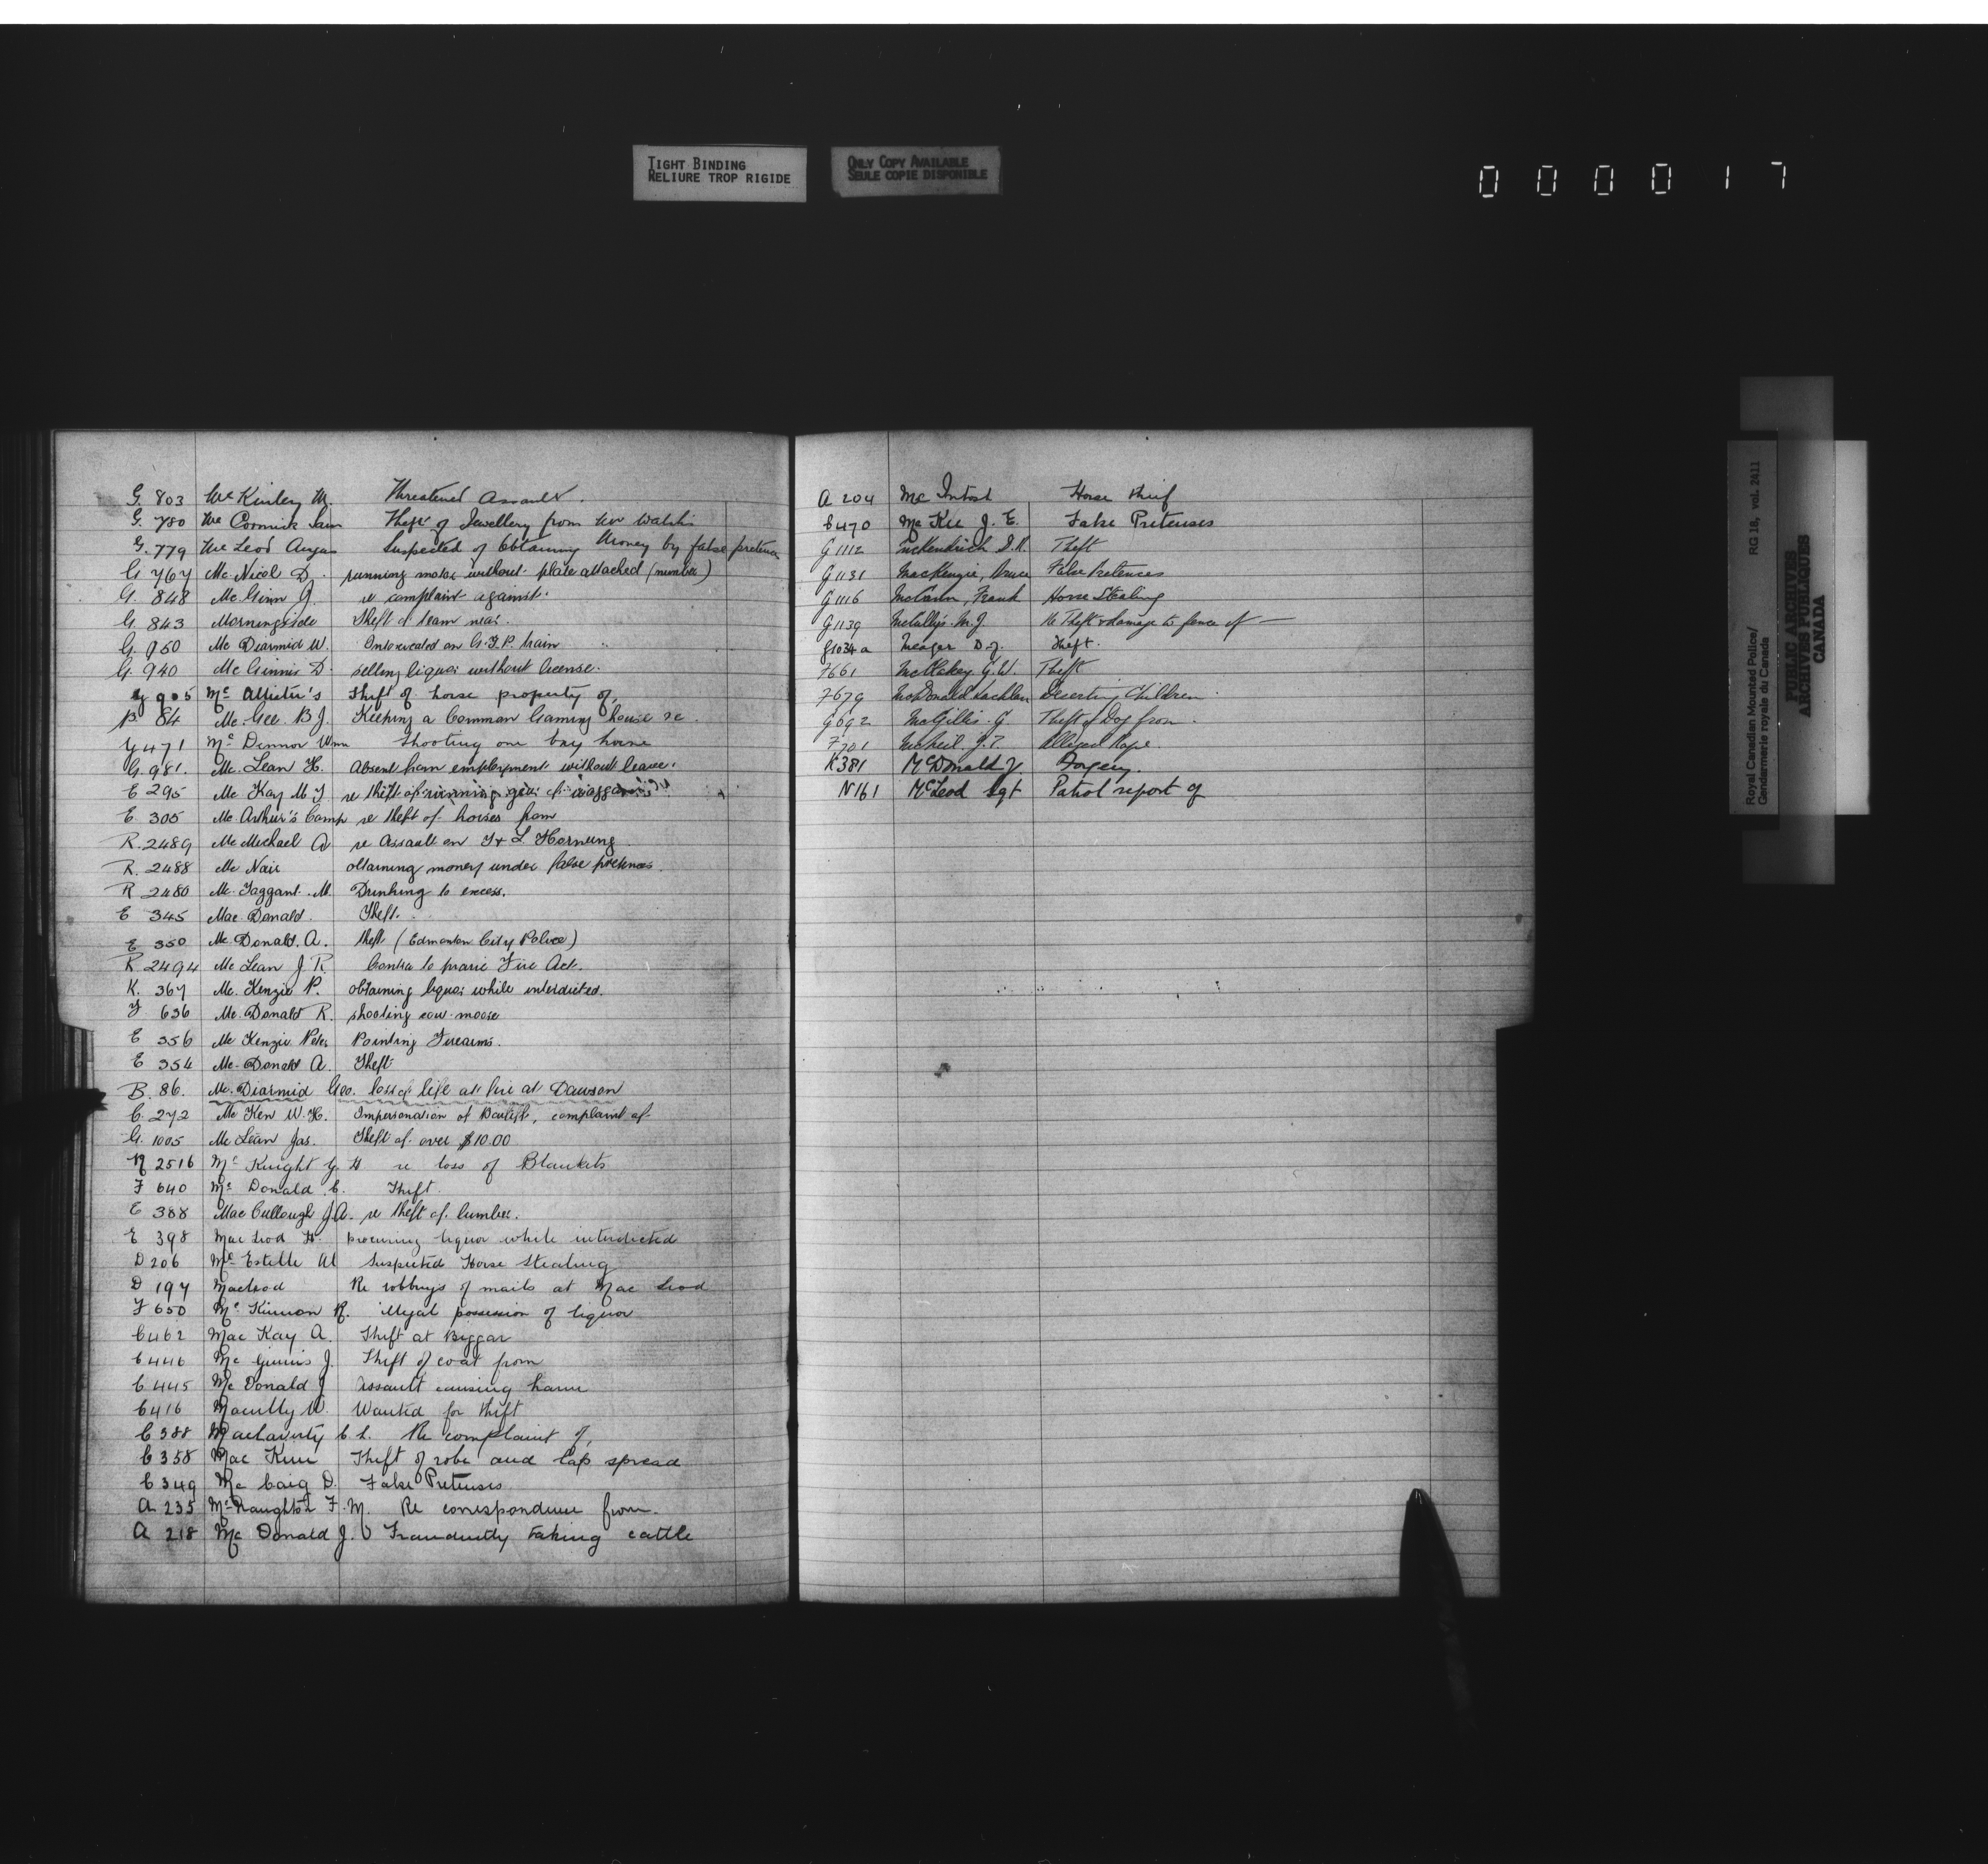 TIGHT BINDING
RELIURE TROP RIGIDE
ONLY COPY AVAILABLE
SEULE COPIE DISPONIBLE
000017
G. 803 McKinley M. Threatened Assault.
G. 780 McCormick Sam Theft of Jewellery from
G. 779 McLeod Angus Suspected of Obtaining Money by false pretence
G. 767 McNicol D. running motor without plate attached (number)
G. 848 McGinn J. re complaint against.
G. 843 Morningside Theft of team near.
G. 950 McDiarmid W. Intoxicated on G.T.P. train
G. 940 McGinnis D. selling liquor without license.
G 905 McAllister's Theft of horse property of,
B. 84 McGee B J. Keeping a Common Gaming house re
G 471 McDennor Wm Shooting one bay horse
G. 981. McLean H. Absent from employment without leave.
E 295 McKay M J re theft of running gear of waggon
E 305 McArthur's Camp re theft of horses from
R. 2489 McMichael A re Assault on J & L Hornung
R. 2488 McNair obtaining money under false pretences.
R 2480 McTaggant M. Drinking to excess.
E 345 MacDonald. Theft.
E 350 McDonald. A. theft (Edmonton City Police)
R. 2494 McLean J. R. Contra to prarie Fire Act.
K. 367 McKenzie P. obtaining liquor while interdicted.
F 636 McDonald R. shooting cow moose
E 356 McKenzie Peter Pointing Firearms.
E 354 McDonald A. Theft
B. 86. McDiarmid Geo. loss of life at fire at Dawson
C. 272 McKen W. H. Impersonation of Bailiff, complaint of
G. 1005 McLean Jas. Theft of over $10.00
R 2516 McKnight G. H re loss of Blankets
F 640 McDonald C. Theft.
E 388 MacCullough J.A. re theft of lumber.
E 398 MacLeod H. procuring liquor while interdicted
D 206 McEstelle Al Suspected Horse Stealing
D 197 Macleod Re robberys of mails at Mac Leod
F 650 McKinnon R. illegal possession of liquor
C 462 MacKay A. Theft at Biggar
C 446 McGinnis J. Theft of coat from
C 445 McDonald J Assault causing harm
C 416 Macully W. Wanted for theft
C 388 Machaverty C L. Re complaint of,
C 358 Mac Theft of robe and Cap spread
C 349 McCaig D. False Pretenses
A 235 McNaughton F. M. Re correspondence from.
A 218 McDonald J. Fraudently taking cattle
A 204 McIntosh Horse thief
C 470 McKee J. E. False Pretenses
G 1112 McKendrich D.R. Theft
G 1131 MacKenzie, Bruce False Pretences
G 1116 Frank Horse Stealing
G 1139 McCally's M.J. Re Theft & damage to fence of —
G 1034 a Meager D J. Theft.
F 661 McBlakey G.W. Theft
F 679 McDonald Lachlan Deserting Children
G 692 McGillis. G. Theft of Dog from.
F 701 McNeil. J.T. Alleged Rape.
K 381 McDonald J. Forgery.
N 161 McLeod Sgt Patrol report of
Royal Canadian Mounted Police/ RG 18, vol. 2411
Gendarmerie royale du Canada
PUBLIC ARCHIVES
ARCHIVES PUBLIQUES
CANADA